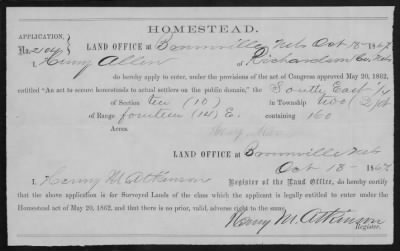 HOMESTEAD.
APPLICATION,
No. 2104 LAND OFFICE at Brownville Neb Oct 18 - 1867
I, Henry Allen of Richardson Co, Neb,
do hereby apply to enter, under the provisions of the act of Congress approved May 20, 1862,
entitled "An act to secure homesteads to actual settlers on the public domain," the South East 1/4
of Section ten (10) in Township two (2)
of Range fourteen (14) E. containing 160
Acres.
LAND OFFICE at Brownville Neb
Oct 18 - 1867
I, Henry M. Atkinson Register of the Land Office, do hereby certify
that the above application is for Surveyed Lands of the class which the applicant is legally entitled to enter under the
Homestead act of May 20, 1862, and that there is no prior, valid, adverse right to the same.
Henry M. Atkinson
Register.